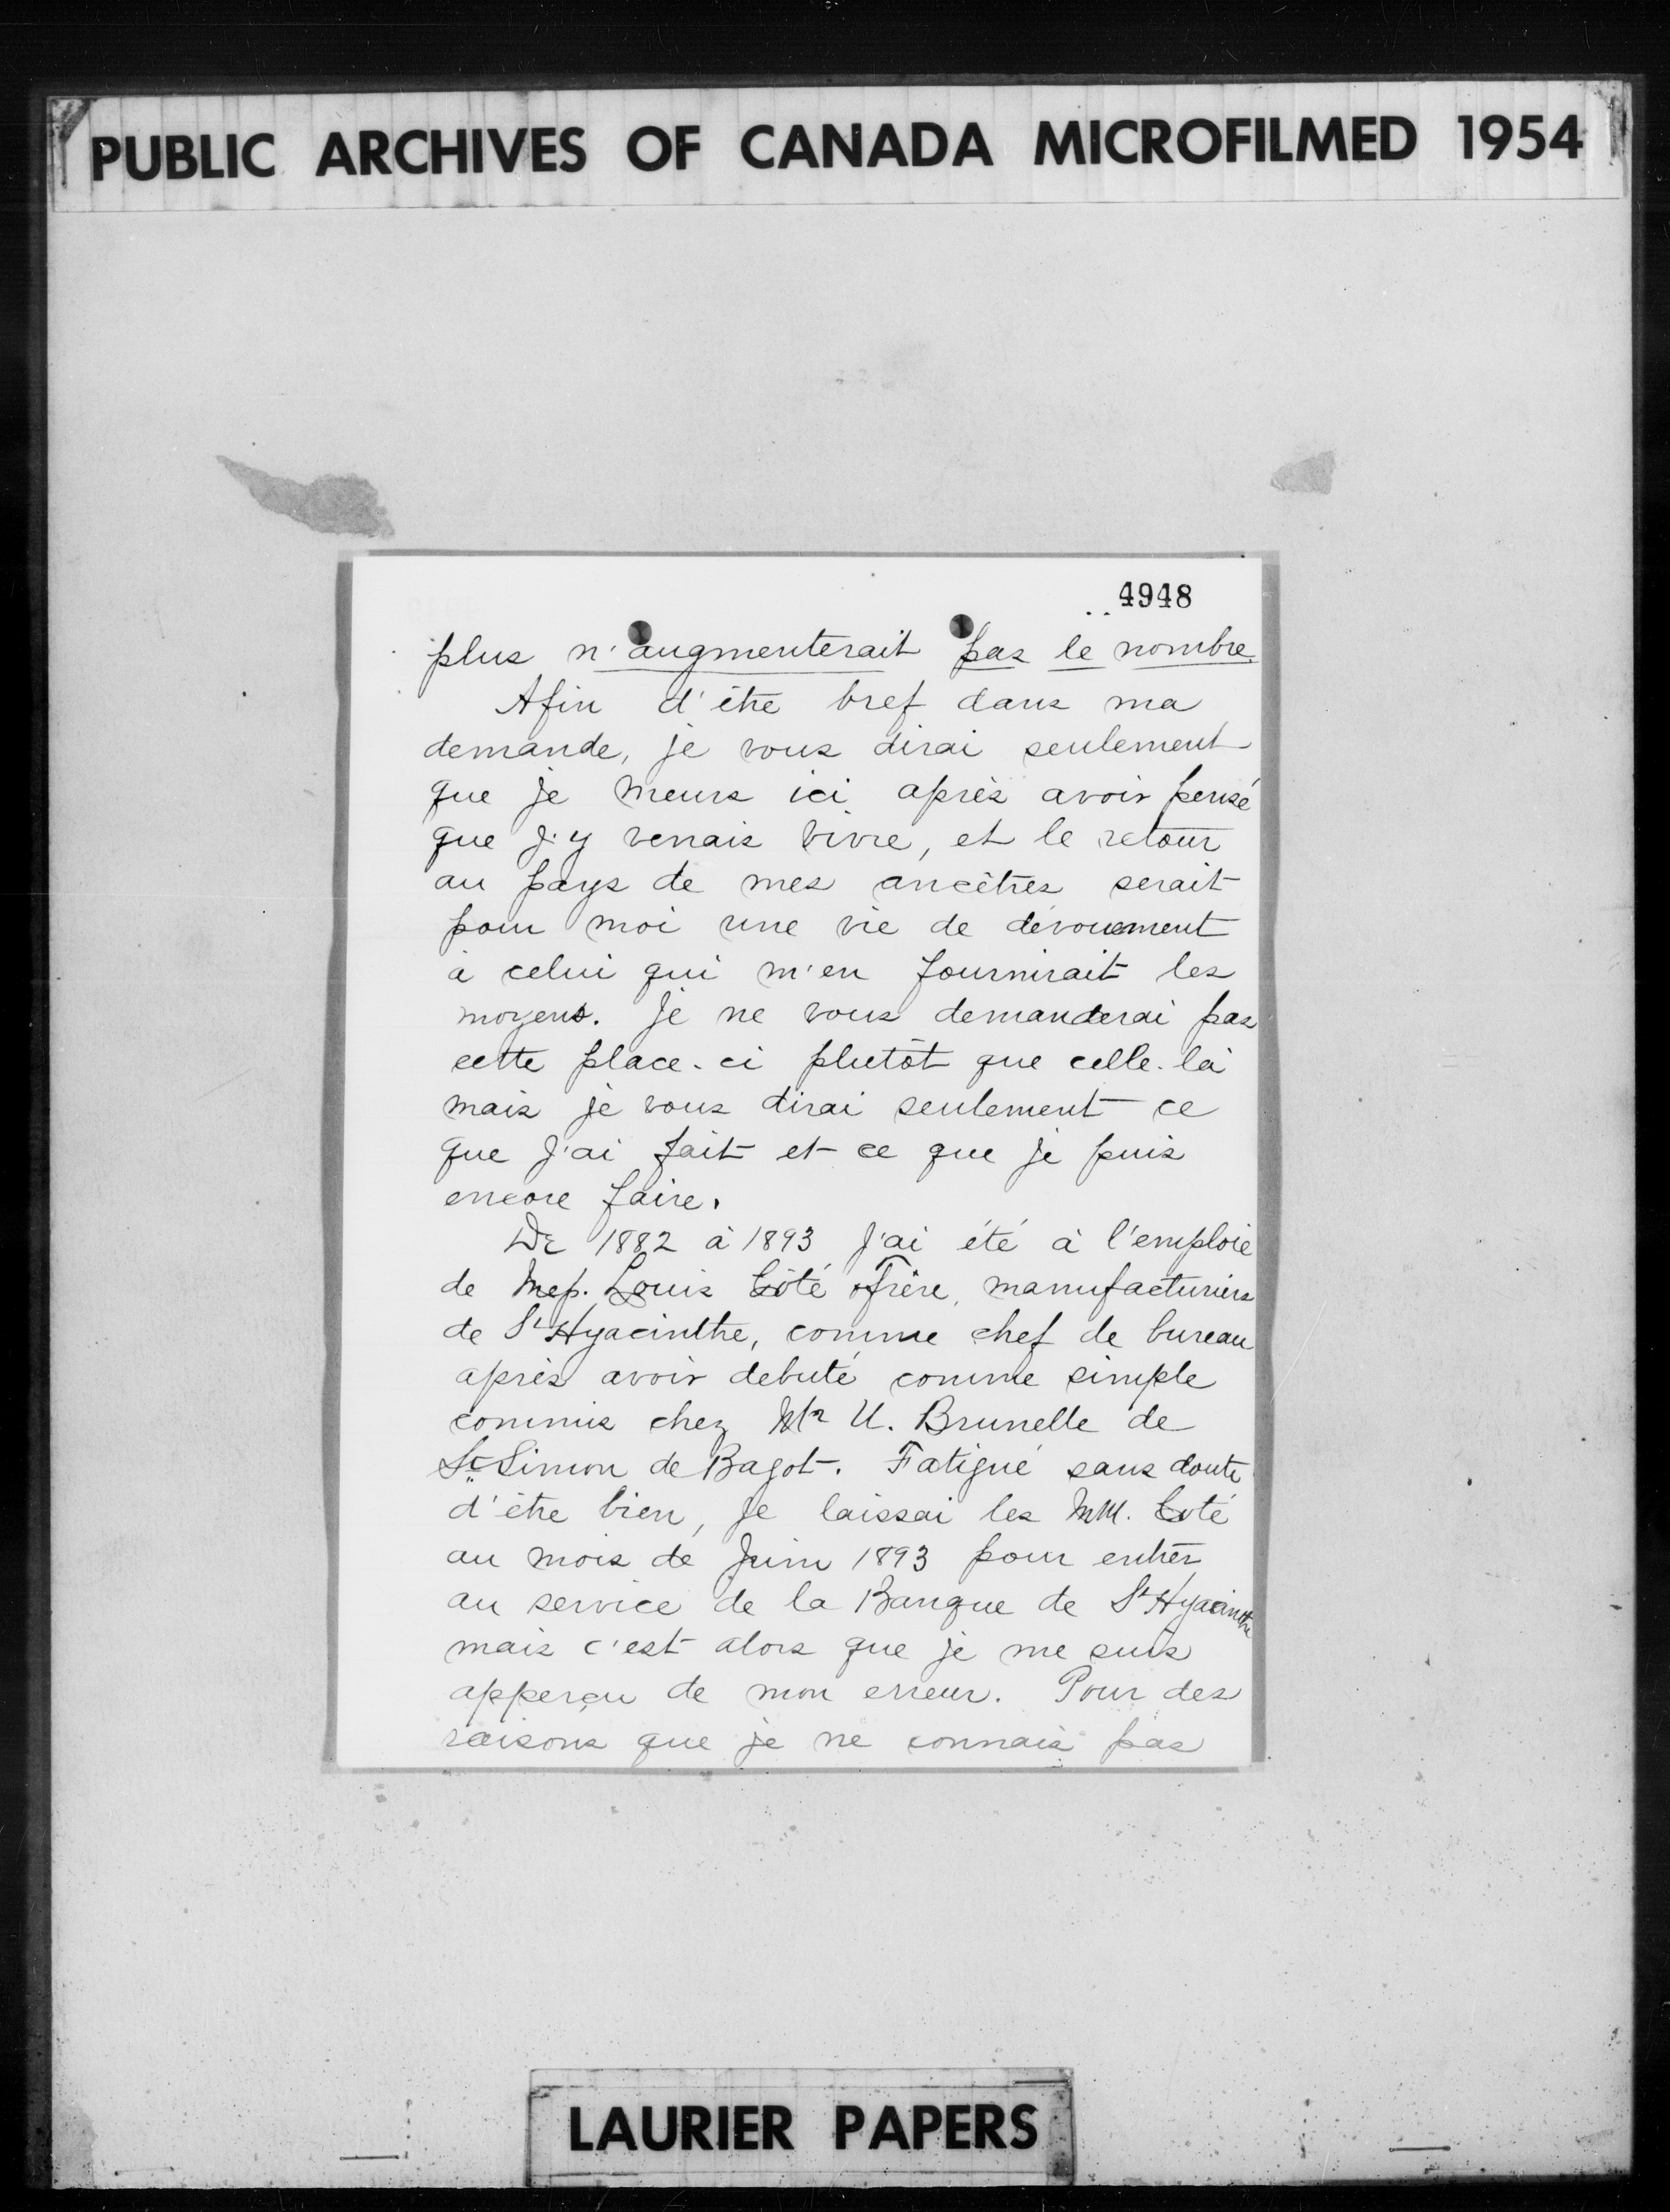 PUBLIC ARCHIVES OF CANADA MICROFILMED 1954
4948
plus n'augmenterait pas le nombre.
Afin d'être bref dans ma
demande, je vous dirai seulement
que je meurs ici après avoir pensé
que j'y venais vivre, et le retour
au pays de mes ancêtres serait
pour moi une vie de dévouement
à celui qui m'en fournirait les
moyens. Je ne vous demanderai pas
cette place-ci plutôt que celle-là
mais je vous dirai seulement ce
que j'ai fait et ce que je puis
encore faire.
De 1882 à 1893 j'ai été à l'emploie
de Louis Côté frère, manufacturiers
de St Hyacinthe, comme chef de bureau
après avoir debuté comme simple
commis chez Mr U. Brunelle de
St Simon de Bagot. Fatigué sans doute
d'être bien, je laissai les MM. Coté
au mois de Juin 1893 pour entrer
au service de la Banque de St Hyacinthe
mais c'est alors que je me suis
apperçu de mon erreur. Pour des
raisons que je ne connais pas
LAURIER PAPERS